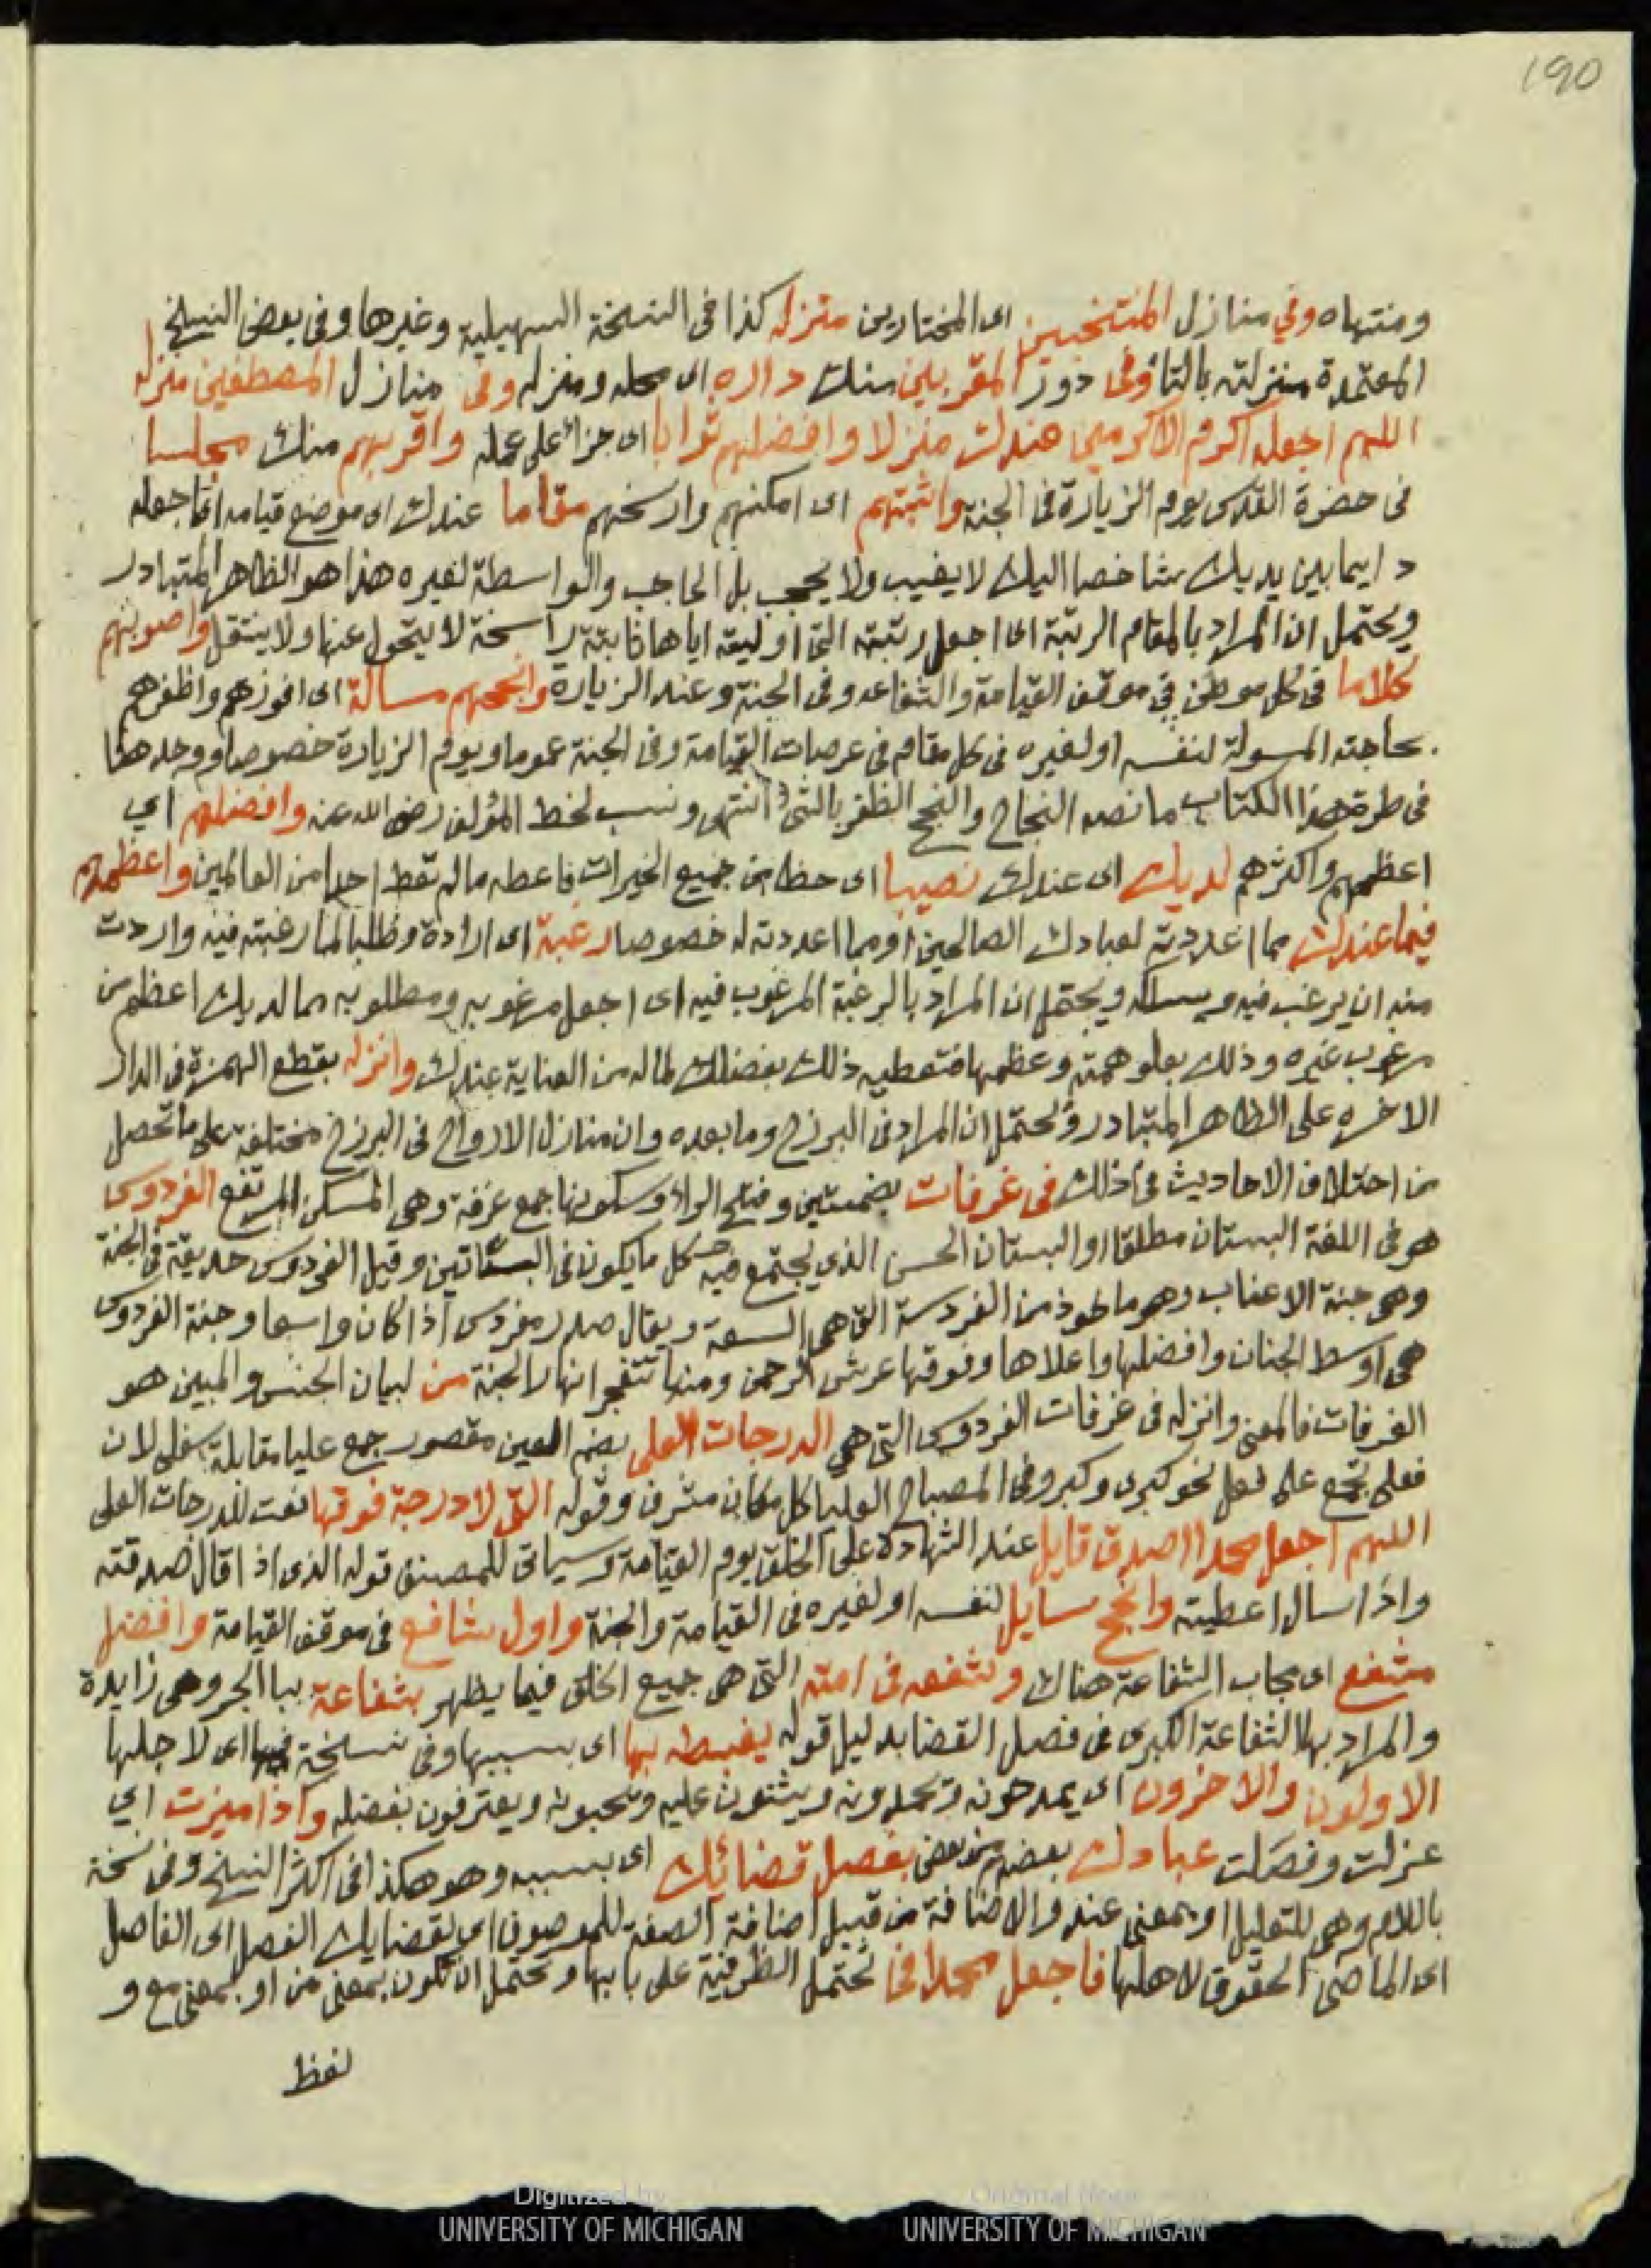 190
ومنتهاه وفي منازل المنتخبين اى المختارين منزله كذا فى النسخة السهيلية وغيرها وفى بعض النسخ
المعتمدة منزلته بالتاء وفى دور المقربين منك داره اى محله ومنزله وفى منازل المصطفين منزله
اللهم اجعله اكرم الاكرمين عندك منزلا وافضلهم ثوابا اى جزاء على عمله واقربهم منك مجلسا
فى حضرة القدس يوم الزيارة فى الجنة واثبتهم اى امكنهم وارسخهم مقاما عندك اى موضع قيامه اقا جعله
دايما بين يديك شاخصا اليك لا يغيب ولا يحجب بل الحاجب والواسطة لغيره هذا هو الظاهر المتبادر
ويحتمل ان المراد بالمقام الرتبة اى اجعل رتبته التى اوليته اياها ثابتة راسخة لا يتحول عنها ولا ينتقل واصوبهم
كلاما فى كل موطن فى موقف القيامة والشفاعة وفى الجنة وعند الزيارة وانجحهم مسالة اى افوزهم واظفرهم
بحاجته المسولة لنفسه او لغيره فى كل مقام فى عرصات القيامة وفى الجنة عموما ويوم الزيارة خصوصا ووجد هنا
فى طرة هذا الكتاب ما نصه النجاح والنجح الظفر بالشئ انتهى ونسب لخط المؤلف رضى الله عنه وافضلهم اي
اعظمهم واكثرهم لديك اى عندك نصيبا اى حظا من جميع الخيرات فاعطه ما لم تعط احدا من العالمين واعظمهم
فيما عندك مما اعددته لعبادك الصالحين او مما اعددته له خصوصا رغبة اى ارادة وطلبا لما رغبته فيه واردت
منه ان يرغب فيه ويسالكه ويحتمل ان المراد بالرغبة المرغوب فيه اى اجعل مرغوبه ومطلوبه مما لديك اعظم من
مرغوب غيره وذلك بعلو همته وعظمها فتعطيه ذلك بفضلك لما له من العناية عندك وانزله بقطع الهمزة فى الدار
الاخره على الظاهر المتبادر ويحتمل ان المراد فى البرزخ وما بعده وان منازل الارواح فى البرزخ مختلفة على ما تحصل
من اختلاف الاحاديث فى ذلك فى غرفات بضمتين وفتح الراء وسكونها جمع غرفة وهى المسكن المرتفع الفردوس
هو فى اللغة البستان مطلقا او البستان الحسن الذي يجتمع فيه كل ما يكون فى البستاتين وقيل الفردوس حديقة فى الجنة
وهى جنة الاعناب وهو ماخوذ من الفردسة التى هى السعة ويقال صدر مفردس اذا كان واسعا وجنة الفردوس
هى اوسط الجنان وافضلها واعلاها وفوقها عرش الرحمن ومنها تتفجر انهار الجنة من لبيان الجنس والمبين هو
الغرفات فالمعنى وانزله فى غرفات الفردوس التى هي الدرجات العلى بضم العين مقصور جمع عليا مقابلة سفلى لان
فعلى تجمع على فعل نحو كبرى وكبر وفى المصباح العليا كل مكان مشرف وقوله التى لا درجة فوقها نعت للدرجات العلى
اللهم اجعل محمدا اصدق قايل عند الشهادة على الخلق يوم القيامة وسياتى للمصنف قوله الذى اذا قال صدقته
واذا سال اعطيته وانجح سايل لنفسه او لغيره فى القيامة والجنة واول شافع فى موقف القيامة وافضل
مشفع اى مجاب الشفاعة هناك وشفعه فى امته التى هى جميع الخلق فيما يظهر بشفاعة ببا الجر وهى زايدة
والمراد بها الشفاعة الكبرى فى فصل القضا بدليل قوله يغبطه بها اى بسببها وفى نسخة فيها اى لاجلها
الاولون والاخرون اى يمدحونه ويحمدونه ويثنون عليه ويحبونه ويعترفون بفضله واذا ميزت اي
عزلت وفصلت عبادك بعضهم من بعض بفصل قضائك اى بسببه وهو هكذا فى اكثر النسخ وفى نسخة
باللام وهى للتعليل او بمعنى عند والاضافة من قبيل اضافة الصفة للموصوف اى بقضايك الفصل اى الفاصل
اى الماضى الحقوق لاهلها فاجعل محمدا فى تحتمل الظرفية على بابها وتحتمل ان تكون بمعنى من او بمعنى مع و
لفظ
Digitized by
UNIVERSITY OF MICHIGAN
Original from
UNIVERSITY OF MICHIGAN